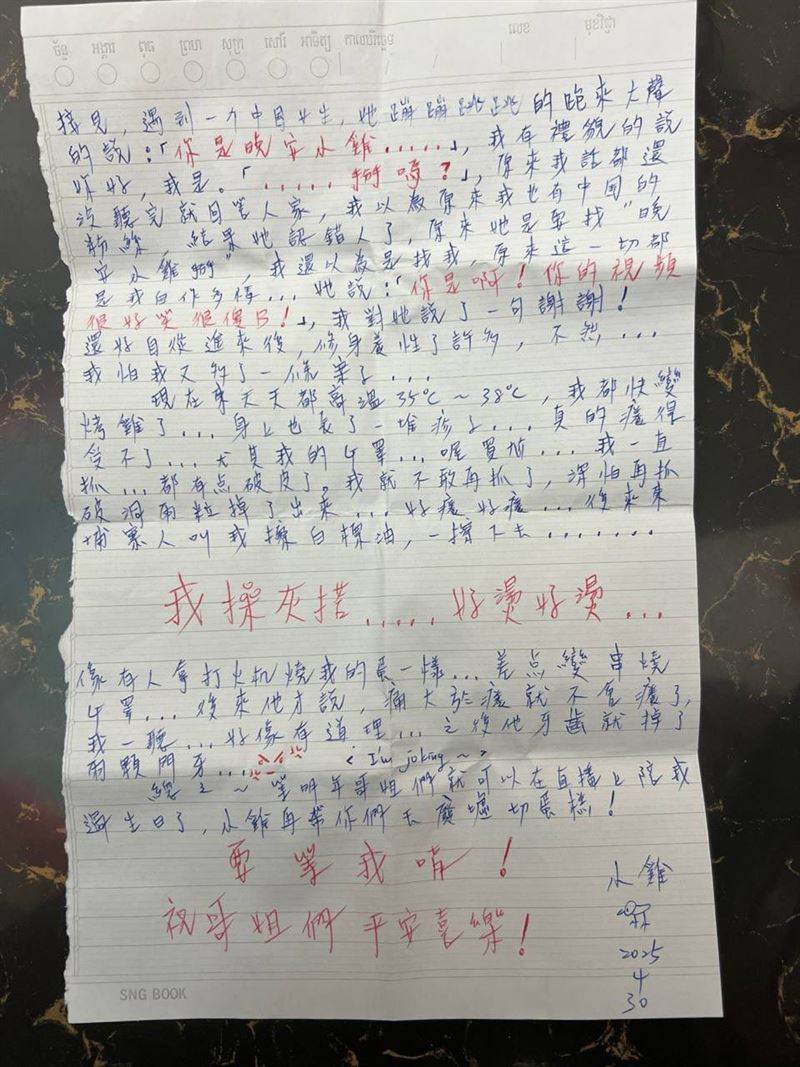 ច័ន្ទ អង្គារ ពុធ ព្រហ សុក្រ សៅរ៍ អាទិត្យ កាលបរិច្ឆេទ លេខ មុខវិជ្ជា
接見，遇到一个中国女生，她蹦蹦跳跳的跑来大聲
的說：「你是晚安小雞.....」，我有禮貌的說
你好，我是。「.....掰嗎？」，原來我話都還
沒聽完就回答人家，我以為原來我也有中国的
粉絲，結果她認錯人了，原來她是要找"晚
安小雞掰"，我還以為是找我，原來這一切都
是我自作多情...她說：「你是啊！你的視頻
很好笑很傻B！」，我對她說了一句謝謝！
還好自從進來後，修身養性了許多，不然...
我怕我又夠了一條案子...
現在柬天天都高溫35℃～38℃，我都快變
烤雞了...身上也長了一堆疹子...真的癢得
受不了...尤其我的ㄐ罩...喔買尬...我一直
抓...都有点破皮了。我就不敢再抓了，深怕再抓
破洞兩粒掉了出來...好癢好癢...後來柬
埔寨人叫我擦白樹油，一擦下去.......
我操灰搭.....好燙好燙...
像有人拿打火机燒我的蛋一樣...差点變串燒
ㄐ罩...後來他才說，痛大於癢就不會癢了，
我一聽...好像有道理...之後他牙齒就掉了
兩顆門牙... < I'm joking ~ >
總之～等明年哥姐們就可以在直播上陪我
過生日了，小雞再帶你們去廢墟切蛋糕！
要等我唷！
祝哥姐們平安喜樂！
小雞
2025
4
30
SNG BOOK